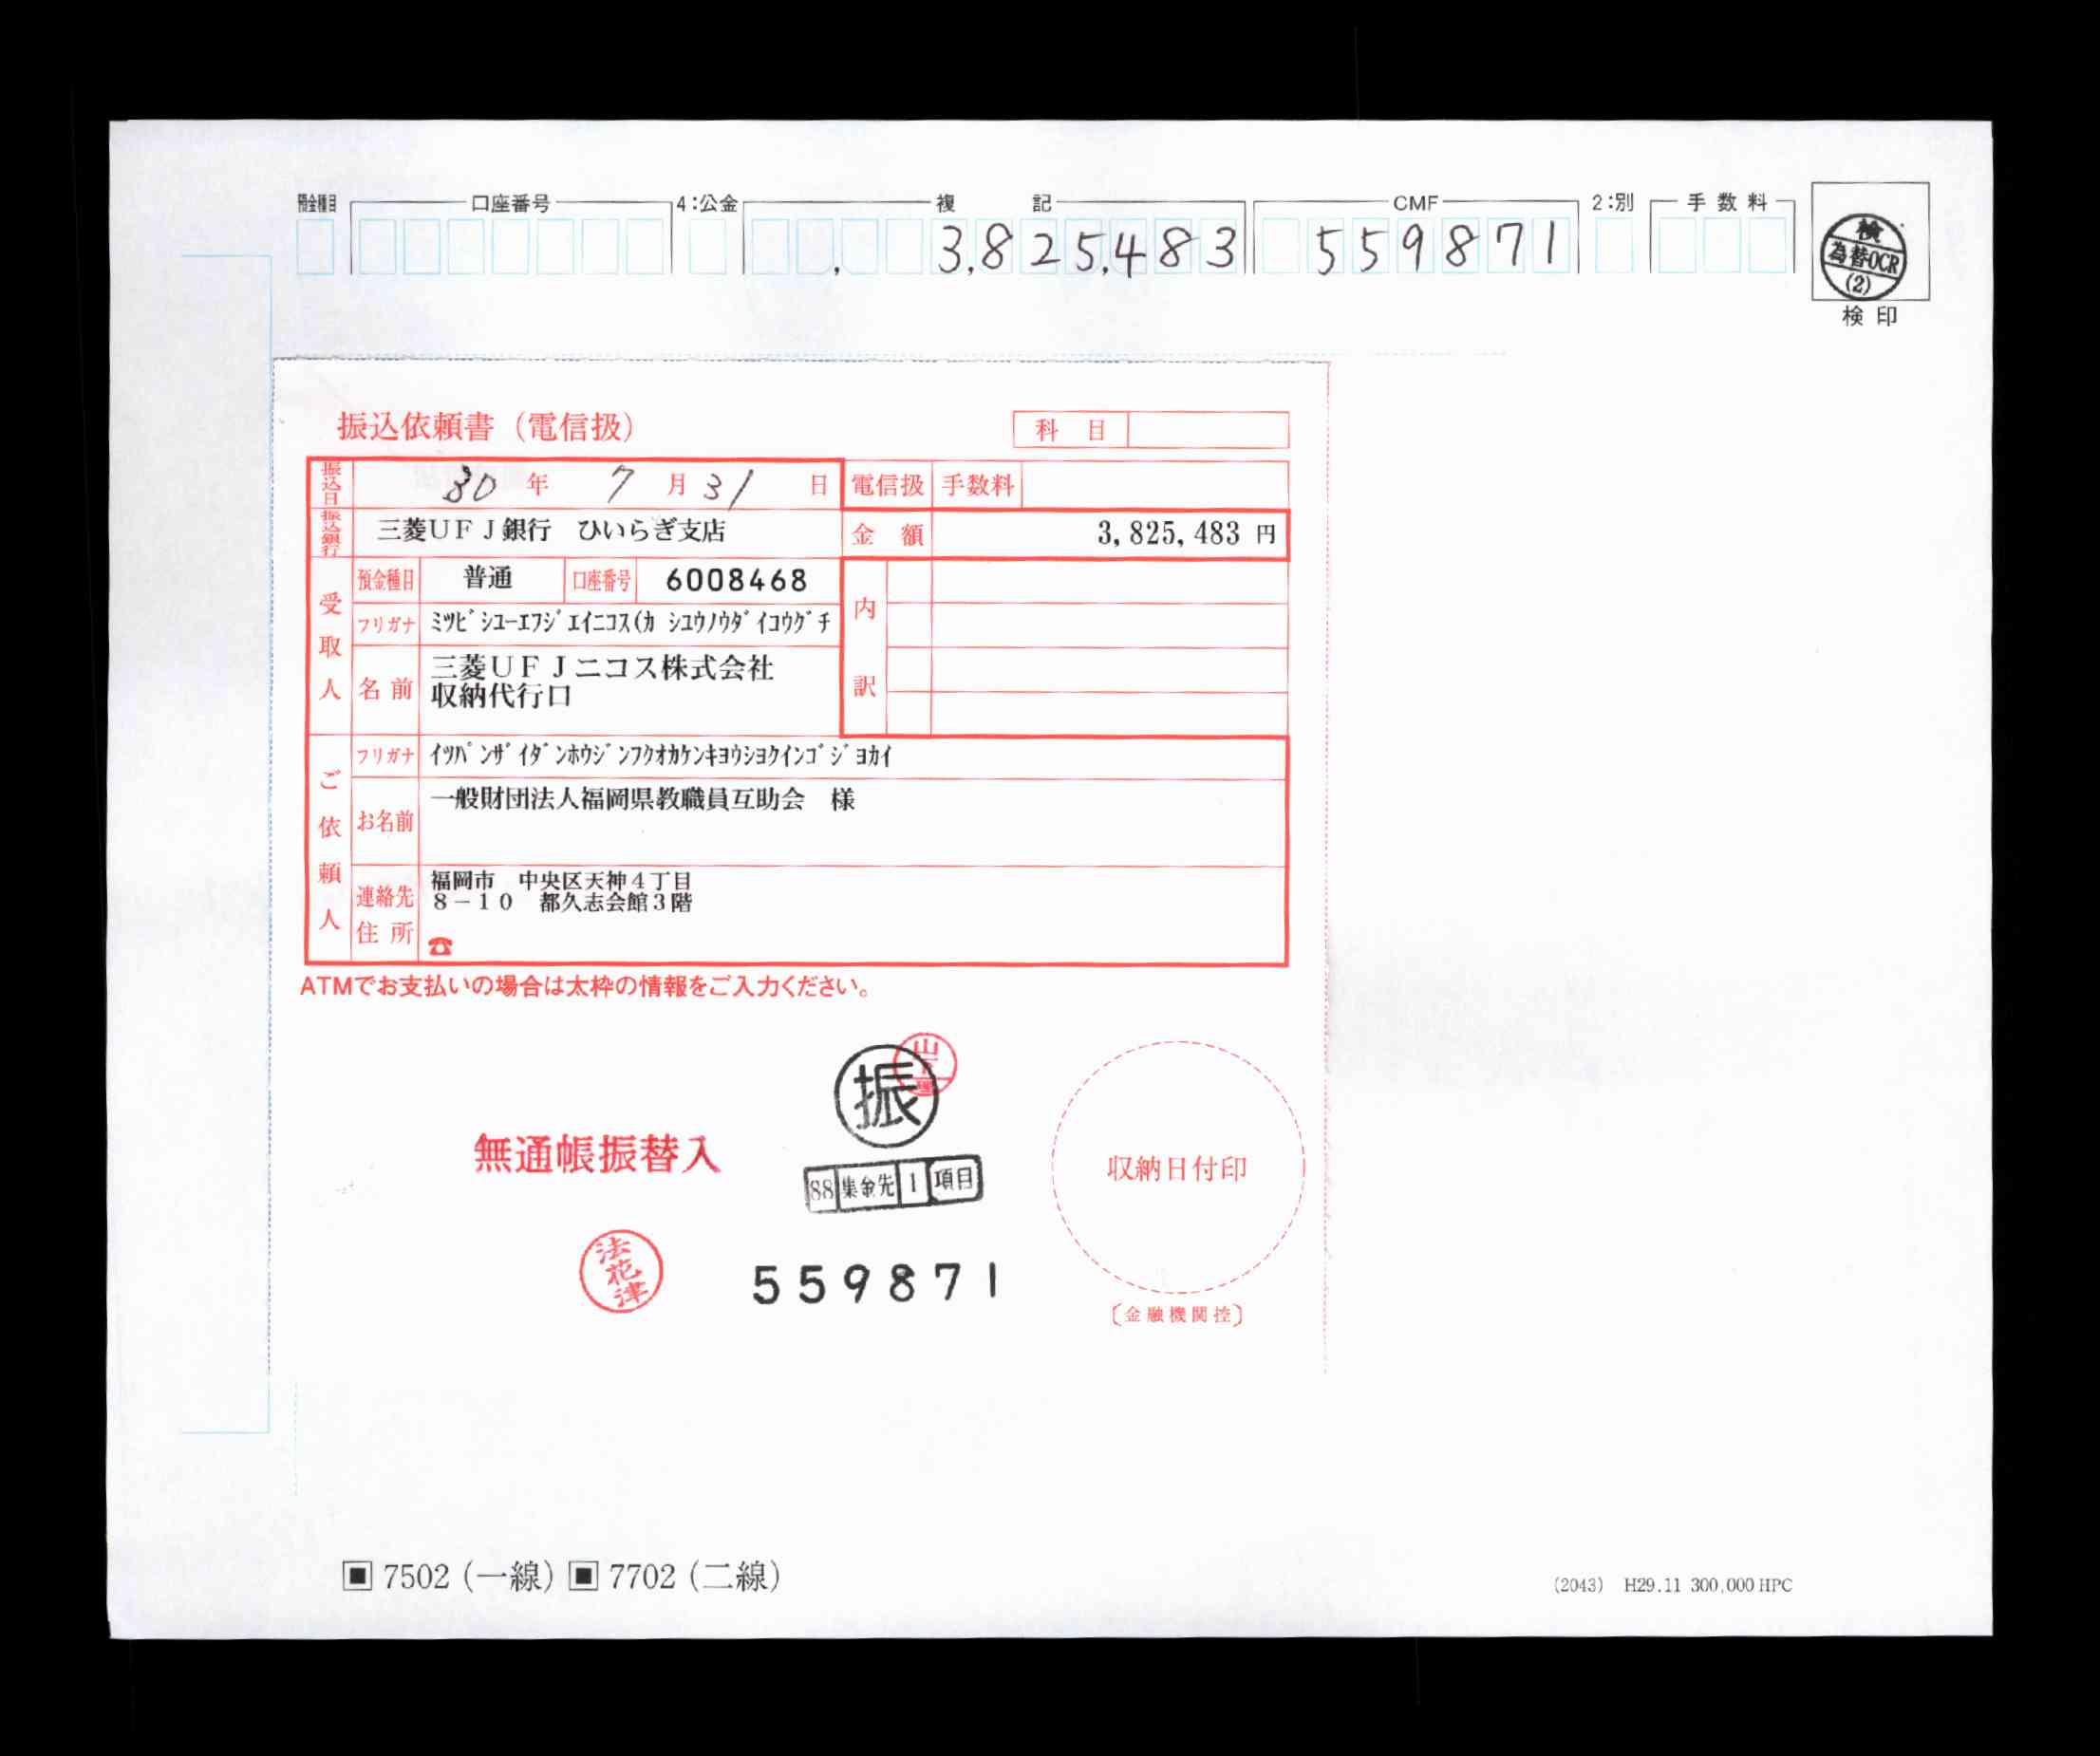 預金種目 口座番号 4:公金 複 記 CMF 2:別 手数料
3,825,483 559871
検
為替OCR
(2)
検印
振込依頼書（電信扱）
科 目
振込日 30年 7月31日 電信扱 手数料
振込銀行 三菱ＵＦＪ銀行 ひいらぎ支店 金 額 3,825,483 円
受取人 預金種目 普通 口座番号 6008468
内訳
フリガナ ﾐﾂﾋﾞｼﾕｰｴﾌｼﾞｴｲﾆｺｽ(ｶ ｼﾕｳﾉｳﾀﾞｲｺｳｸﾞﾁ
名前 三菱ＵＦＪニコス株式会社
収納代行口
ご依頼人 フリガナ ｲﾂﾊﾟﾝｻﾞｲﾀﾞﾝﾎｳｼﾞﾝﾌｸｵｶｹﾝｷﾖｳｼﾖｸｲﾝｺﾞｼﾞﾖｶｲ
お名前 一般財団法人福岡県教職員互助会 様
連絡先住所 福岡市 中央区天神４丁目
８－１０ 都久志会館３階
☎
ATMでお支払いの場合は太枠の情報をご入力ください。
振
無通帳振替入
88 集金先 1 項目
収納日付印
法花津
559871
〔金融機関控〕
▣ 7502（一線）▣ 7702（二線）
(2043) H29.11 300,000 HPC